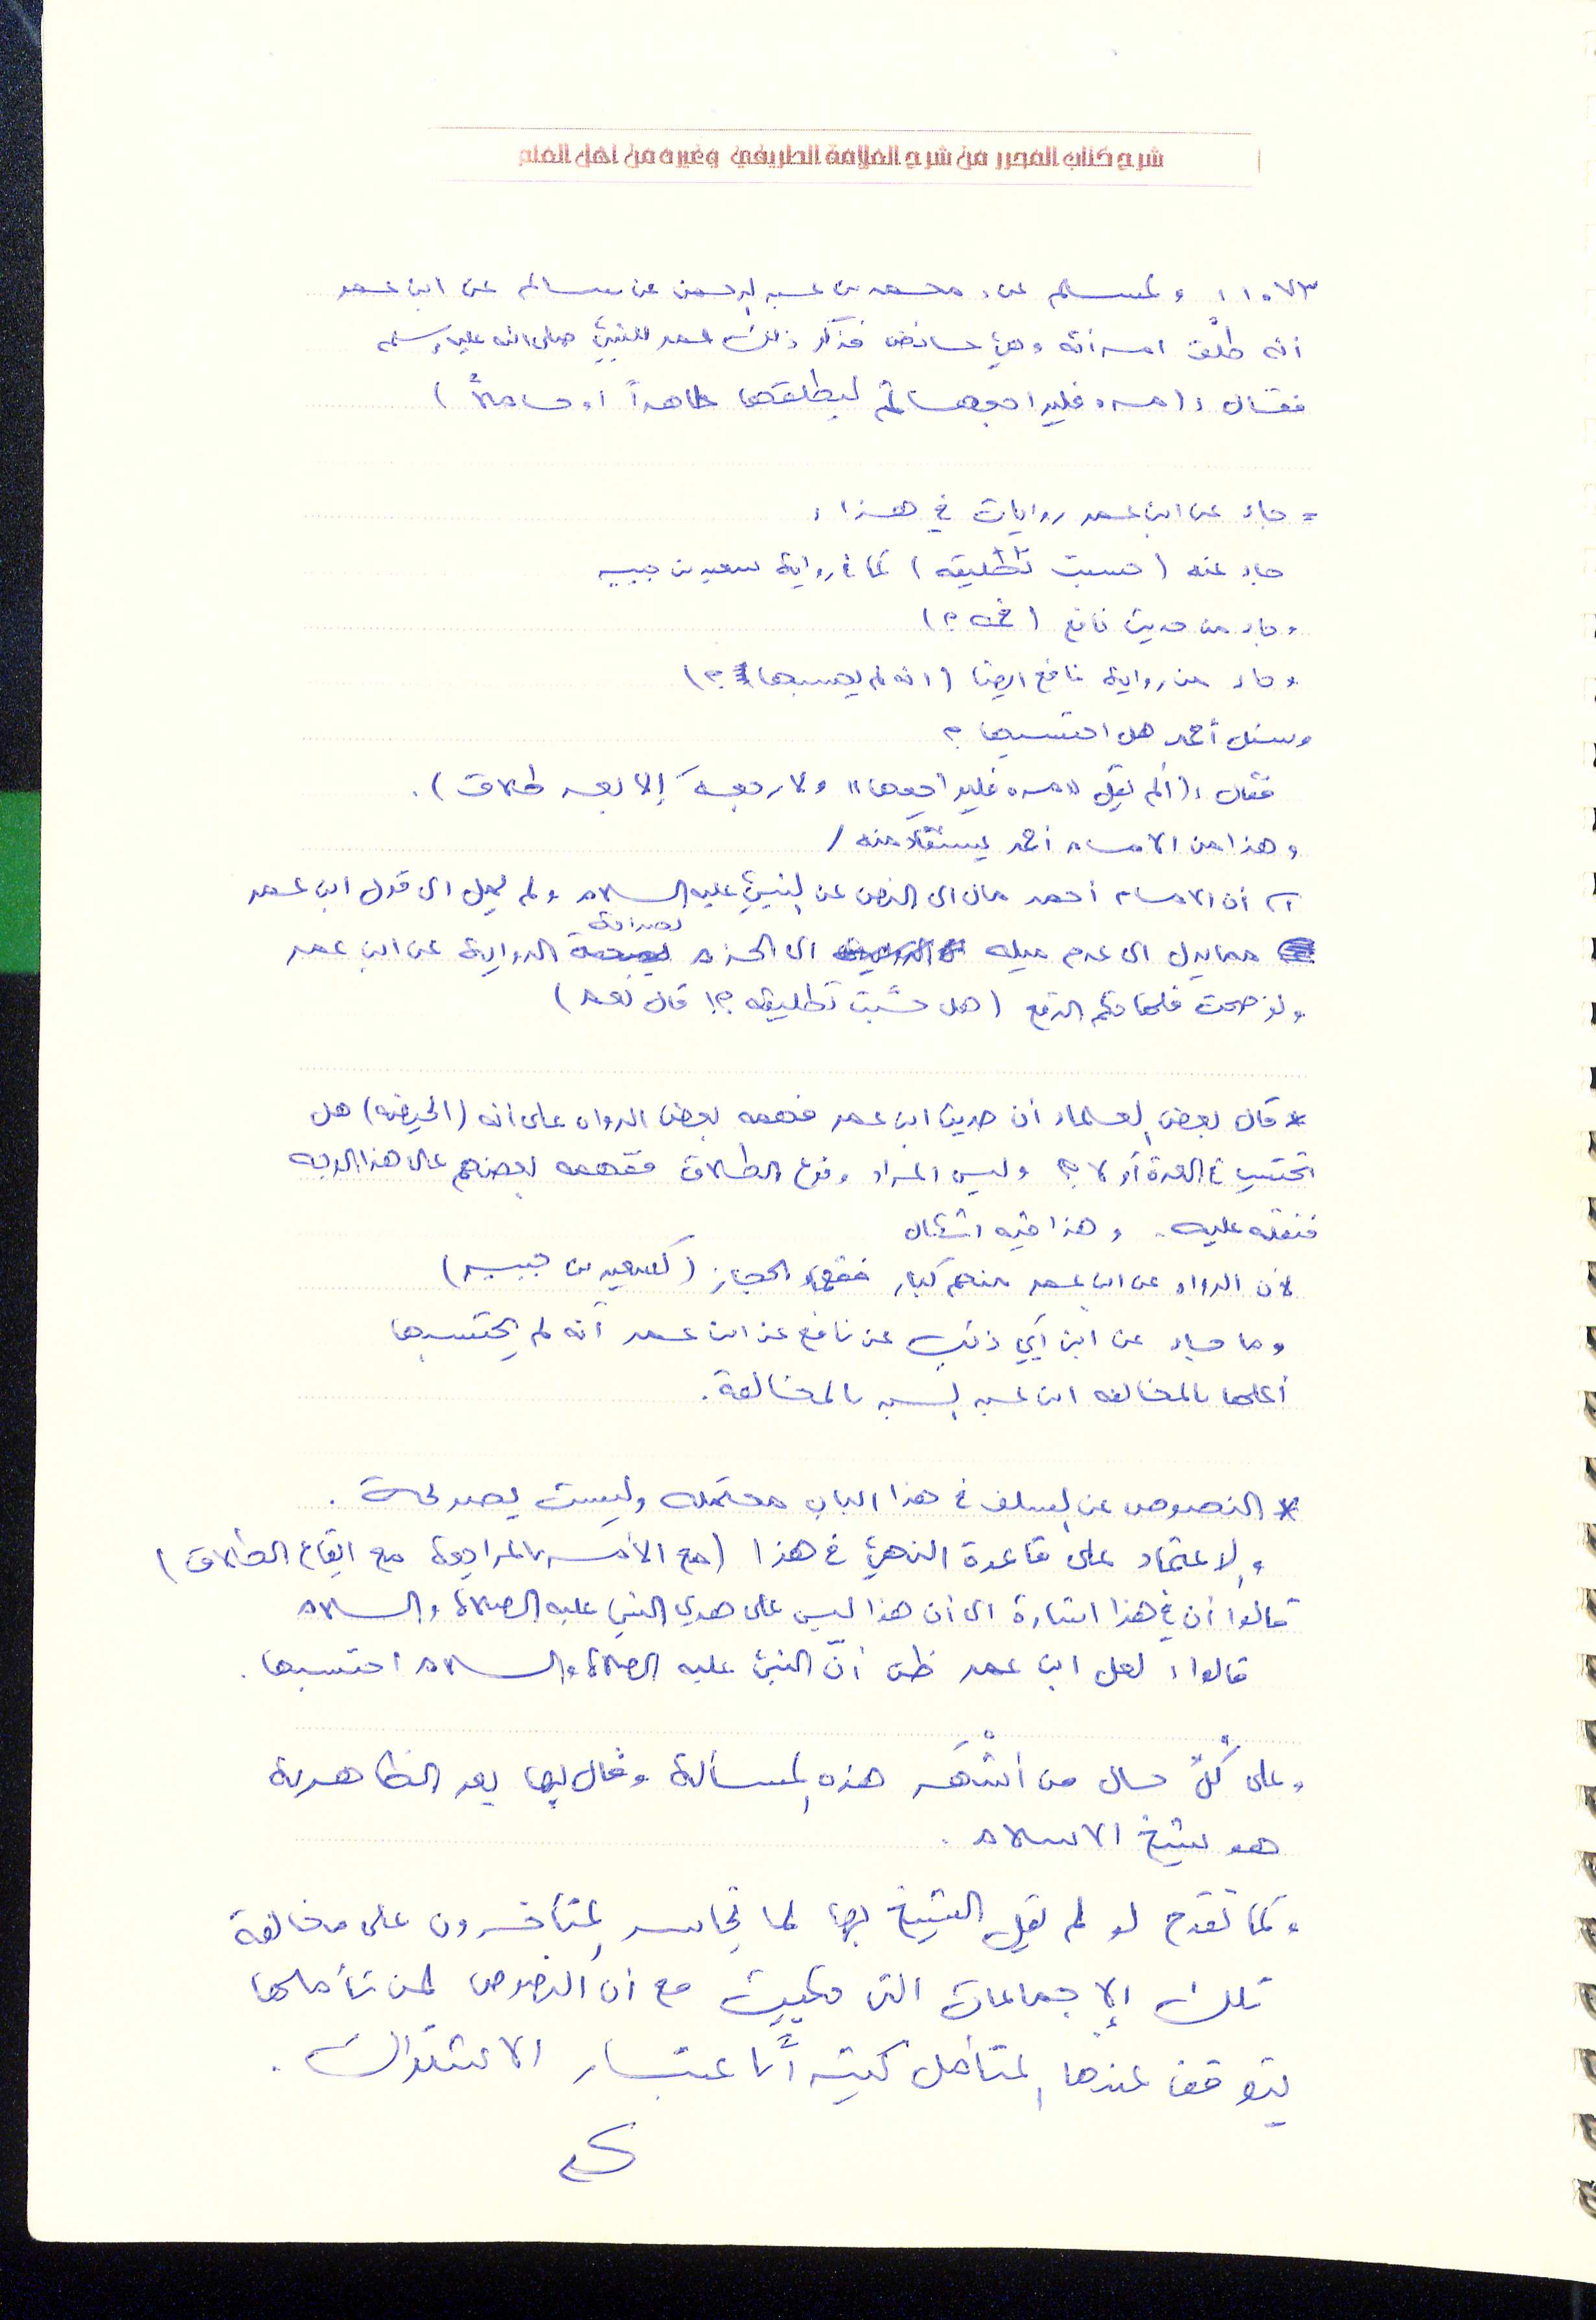 شرح كتاب المحرر من شرح العلامة الطريفي وغيره من اهل العلم
١٠٧٣، ولمسلم عن: محمد بن عبد الرحمن عن سالم عن ابن عمر
أنه طلّق امرأته وهي حائض فذكر ذلك عمر للنبيّ صلى الله عليه وسلم
فقال: (مره فليراجعها ثم ليطلقها طاهراً أو حاملاً)
= جاء عن ابن عمر روايات في هذا:
جاء عنه (حسبت تطليقه) كما في رواية سعيد بن جبير
وجاء من حديث نافع (فمه؟)
وجاء من رواية نافع ايضا (انه لم يحسبها؟)
وسئل أحمد هل احتسبها؟
فقال: (ألم يقل "مره فليراجعها" ولا رجعة إلا بعد طلاق).
وهذا من الامام أحمد يستفاد منه /
أن الامام أحمد مال الى النص عن النبيّ عليه السلام ولم يمل الى قول ابن عمر
مما يدل الى عدم ميله الى الجزم بصراحة الرواية عن ابن عمر
ولو صحت فلها حكم الرفع (هل حسبت تطليقه؟! قال نعم)
* قال بعض العلماء أن حديث ابن عمر فهمه بعض الرواه على أنه (الحيضه) هل
تحتسب في العدة أو لا؟ وليس المراد وقوع الطلاق ففهمه بعضهم على هذا الوجه
فنقله عليه. وهذا فيه اشكال
لأن الرواه عن ابن عمر منهم كبار فقهاء الحجاز (كسعيد بن جبير)
وما جاء عن ابن أبي ذئب عن نافع عن ابن عمر أنه لم يحتسبها
أعلها بالمخالفه ابن عبد البر بالمخالفة.
* النصوص عن السلف في هذا الباب محتمله وليست بصريحة.
والاعتماد على قاعدة النهي في هذا (مع الأمر بالمراجعة مع ايقاع الطلاق)
قالوا أن في هذا اشارة الى أن هذا ليس على هدي النبي عليه الصلاة والسلام
قالوا: لعل ابن عمر ظن أنّ النبيّ عليه الصلاة والسلام احتسبها.
وعلى كُلٍّ حال من أشْهَر هذه المسألة وقال بها بعد الظاهرية
هو شيخ الاسلام.
وكما تقدم لو لم يقل الشيخ بها لما تجاسر المتأخرون على مخالفة
تلك الإجماعات التي حكيت مع أن النصوص لمن تأملها
يتوقف عندها المتأمل كثيراً باعتبار الاشتراك.